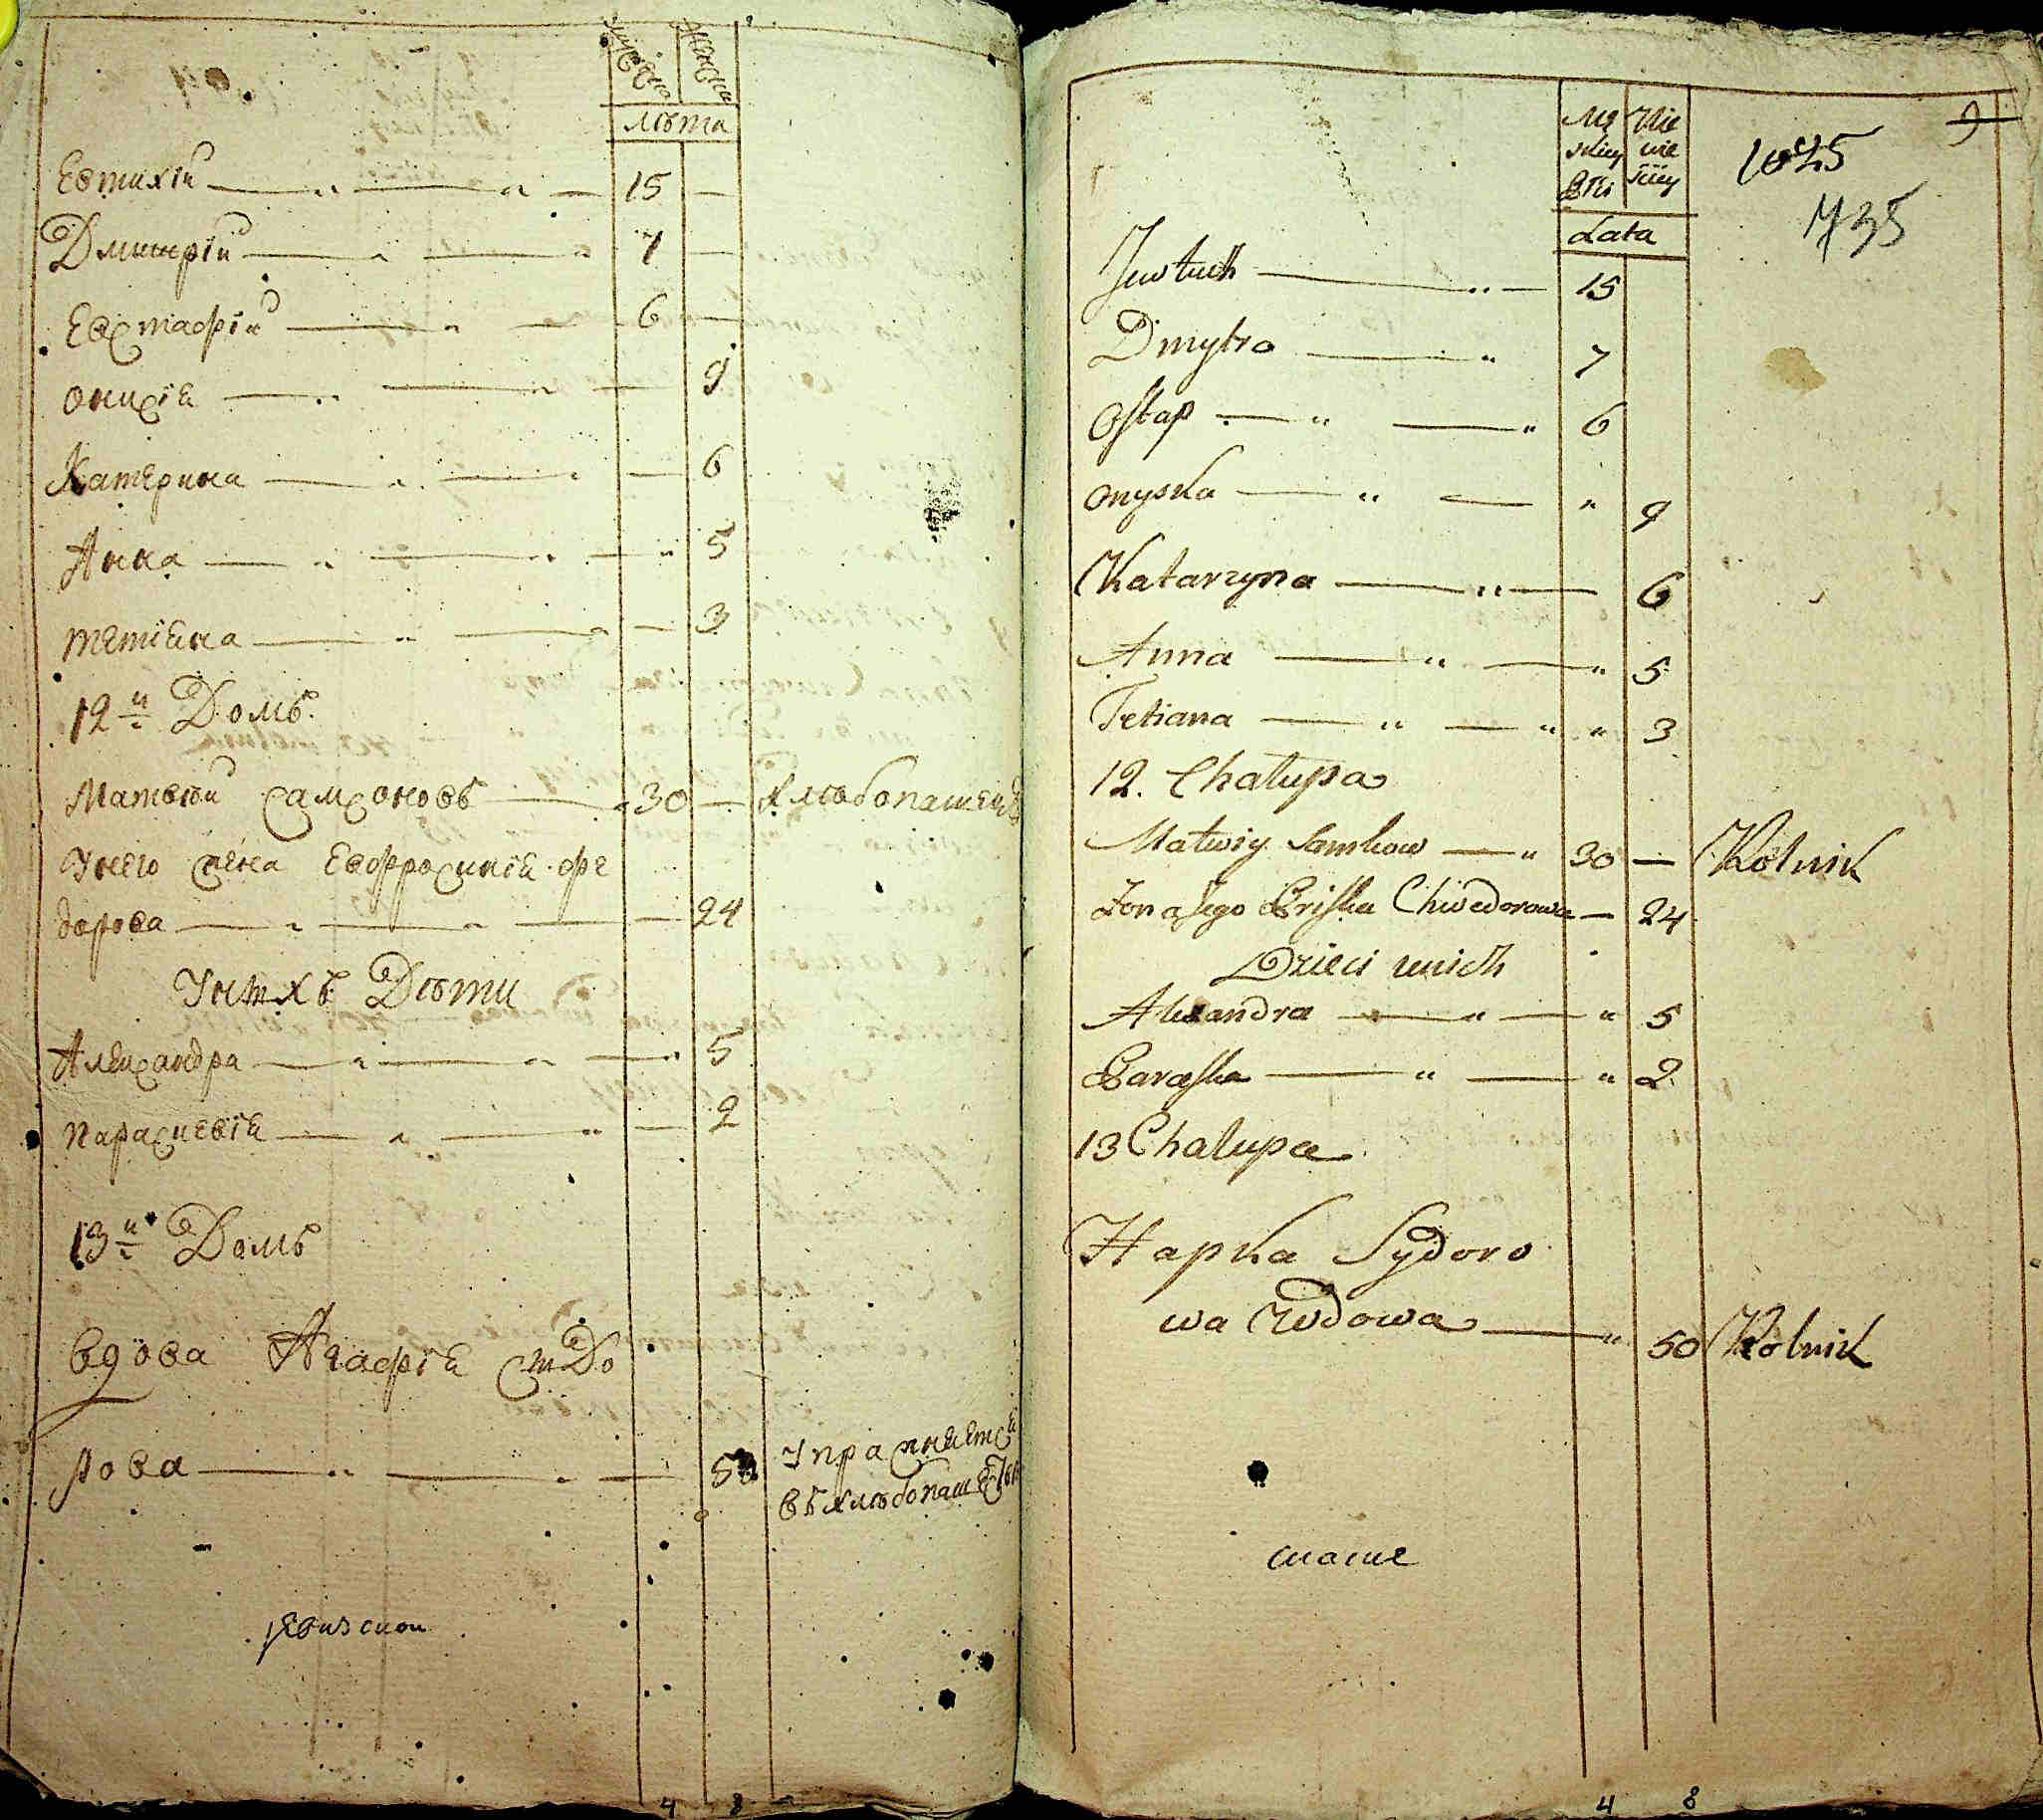 мужеска
женска
лѣта
Евтихій 15
Дмитрій 7
Евстафій 6
Онисія 9
Катерина 6
Анна 5
Тетіяна 3
12й Домъ
Матвѣй Самсоновъ 30 хлѣбопашецъ
У него жена Евфросинія Фе
дорова 24
У нихъ Дѣти
Александра 5
Параскевія 2
13й Домъ
Вдова Агафія Сидо
рова 50 упражняется
въ хлѣбопаш
ревизскои
9
1035
735
Mę Nie
skiey wie
Płci sciey
Lata
Jewtuch 15
Dmytro 7
Ostap 6
Onyska 9
Katarzyna 6
Anna 5
Tetiana 3
12. Chalupa
Matwiy Samkow 30 Rolnik
Zona Jego Priska Chwedorowa 24
Dzieci unich
Alexandra 5
Paraska 2
13 Chalupa
Hapka Sydoro
wa Wdowa 50 Rolnik
4 8
4 8